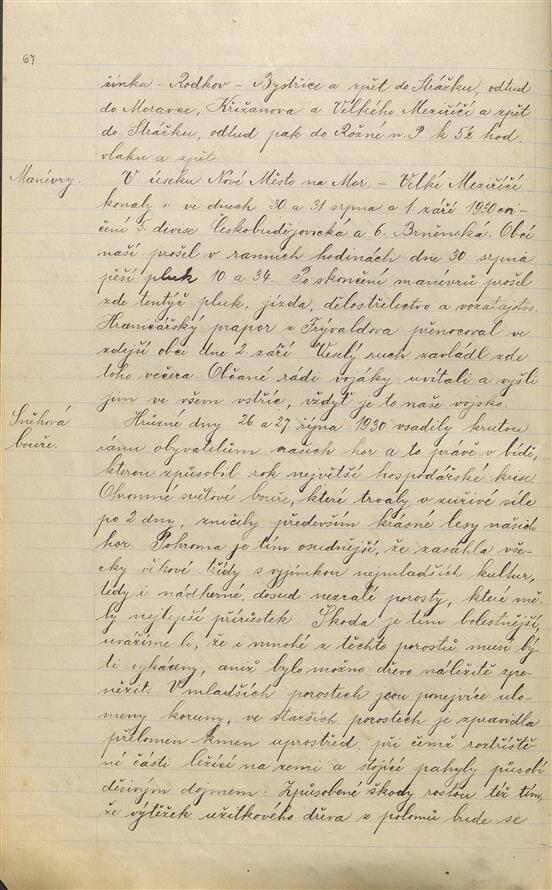 67
žínka - Rodkov - Bystřice a zpět do Strážku, odtud
do Moravce, Křižanova a Velkého Meziříčí a zpět
do Strážku, odtud pak do Rožné n. P. k 5½ hod.
vlaku a zpět.
Manévry.
V úseku Nové Město na Mor. - Velké Meziříčí
konaly ve dnech 30 a 31 srpna a 1 září 1930 cvi-
čení 5. divise Českobudějovická a 6. Brněnská. Obcí
naší prošel v ranních hodinách dne 30. srpna
pěší pluk 10. a 34. Po skončení manévrů prošel
zde tentýž pluk, jízda, dělostřelectvo a vozatajstvo.
Hraničářský prapor z Frývaldova přenocoval ve
zdejší obci dne 2. září. Veselý ruch zavládl zde
toho večera. Občané rádi vojáky uvítali a vyšli
jim ve všem vstříc, vždyť je to naše vojsko.
Sněhová
bouře.
Hrůzné dny 26 a 27 října 1930 vsadily krutou
ránu obyvatelům našich hor a to právě v bídě,
kterou způsobil rok největší hospodářské krise.
Ohromné sněhové bouře, které trvaly v zuřivé síle
po 2 dny, zničily především krásné lesy našich
hor. Pohroma je tím osudnější, že zasáhla vše-
cky věkové třídy s vyjímkou nejmladších kultur,
tedy i nádherné, dosud nezralé porosty, které mě-
ly nejlepší přírůstek. Škoda je tím bolestnější,
uvážíme-li, že i mnohé z těchto porostů musí bý-
ti vykáceny, aniž bylo možno dřevo náležitě zpe-
něžit. V mladších porostech jsou ponejvíce ulo-
meny koruny, ve starších porostech je zpravidla
přelomen kmen uprostřed, při čemž roztříště-
né části ležící na zemi a stojící pahýly působí
děsivým dojmem. Způsobené škody rostou též tím,
že výtěžek užitkového dřeva z polomů bude se